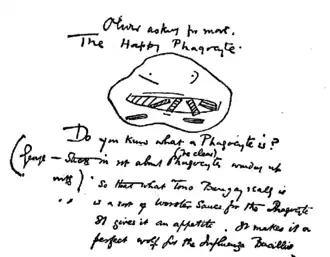 Oliver asking for more.
The Happy Phagocyte.
Do you know what a Phagocyte is?
(no clear)
not about Phagocyte
So that what Tono Bungay really is
is a sort of Worster Sauce for the Phagocyte
It gives it an appetite. It makes it a
perfect wolf for the Influenza Bacillus